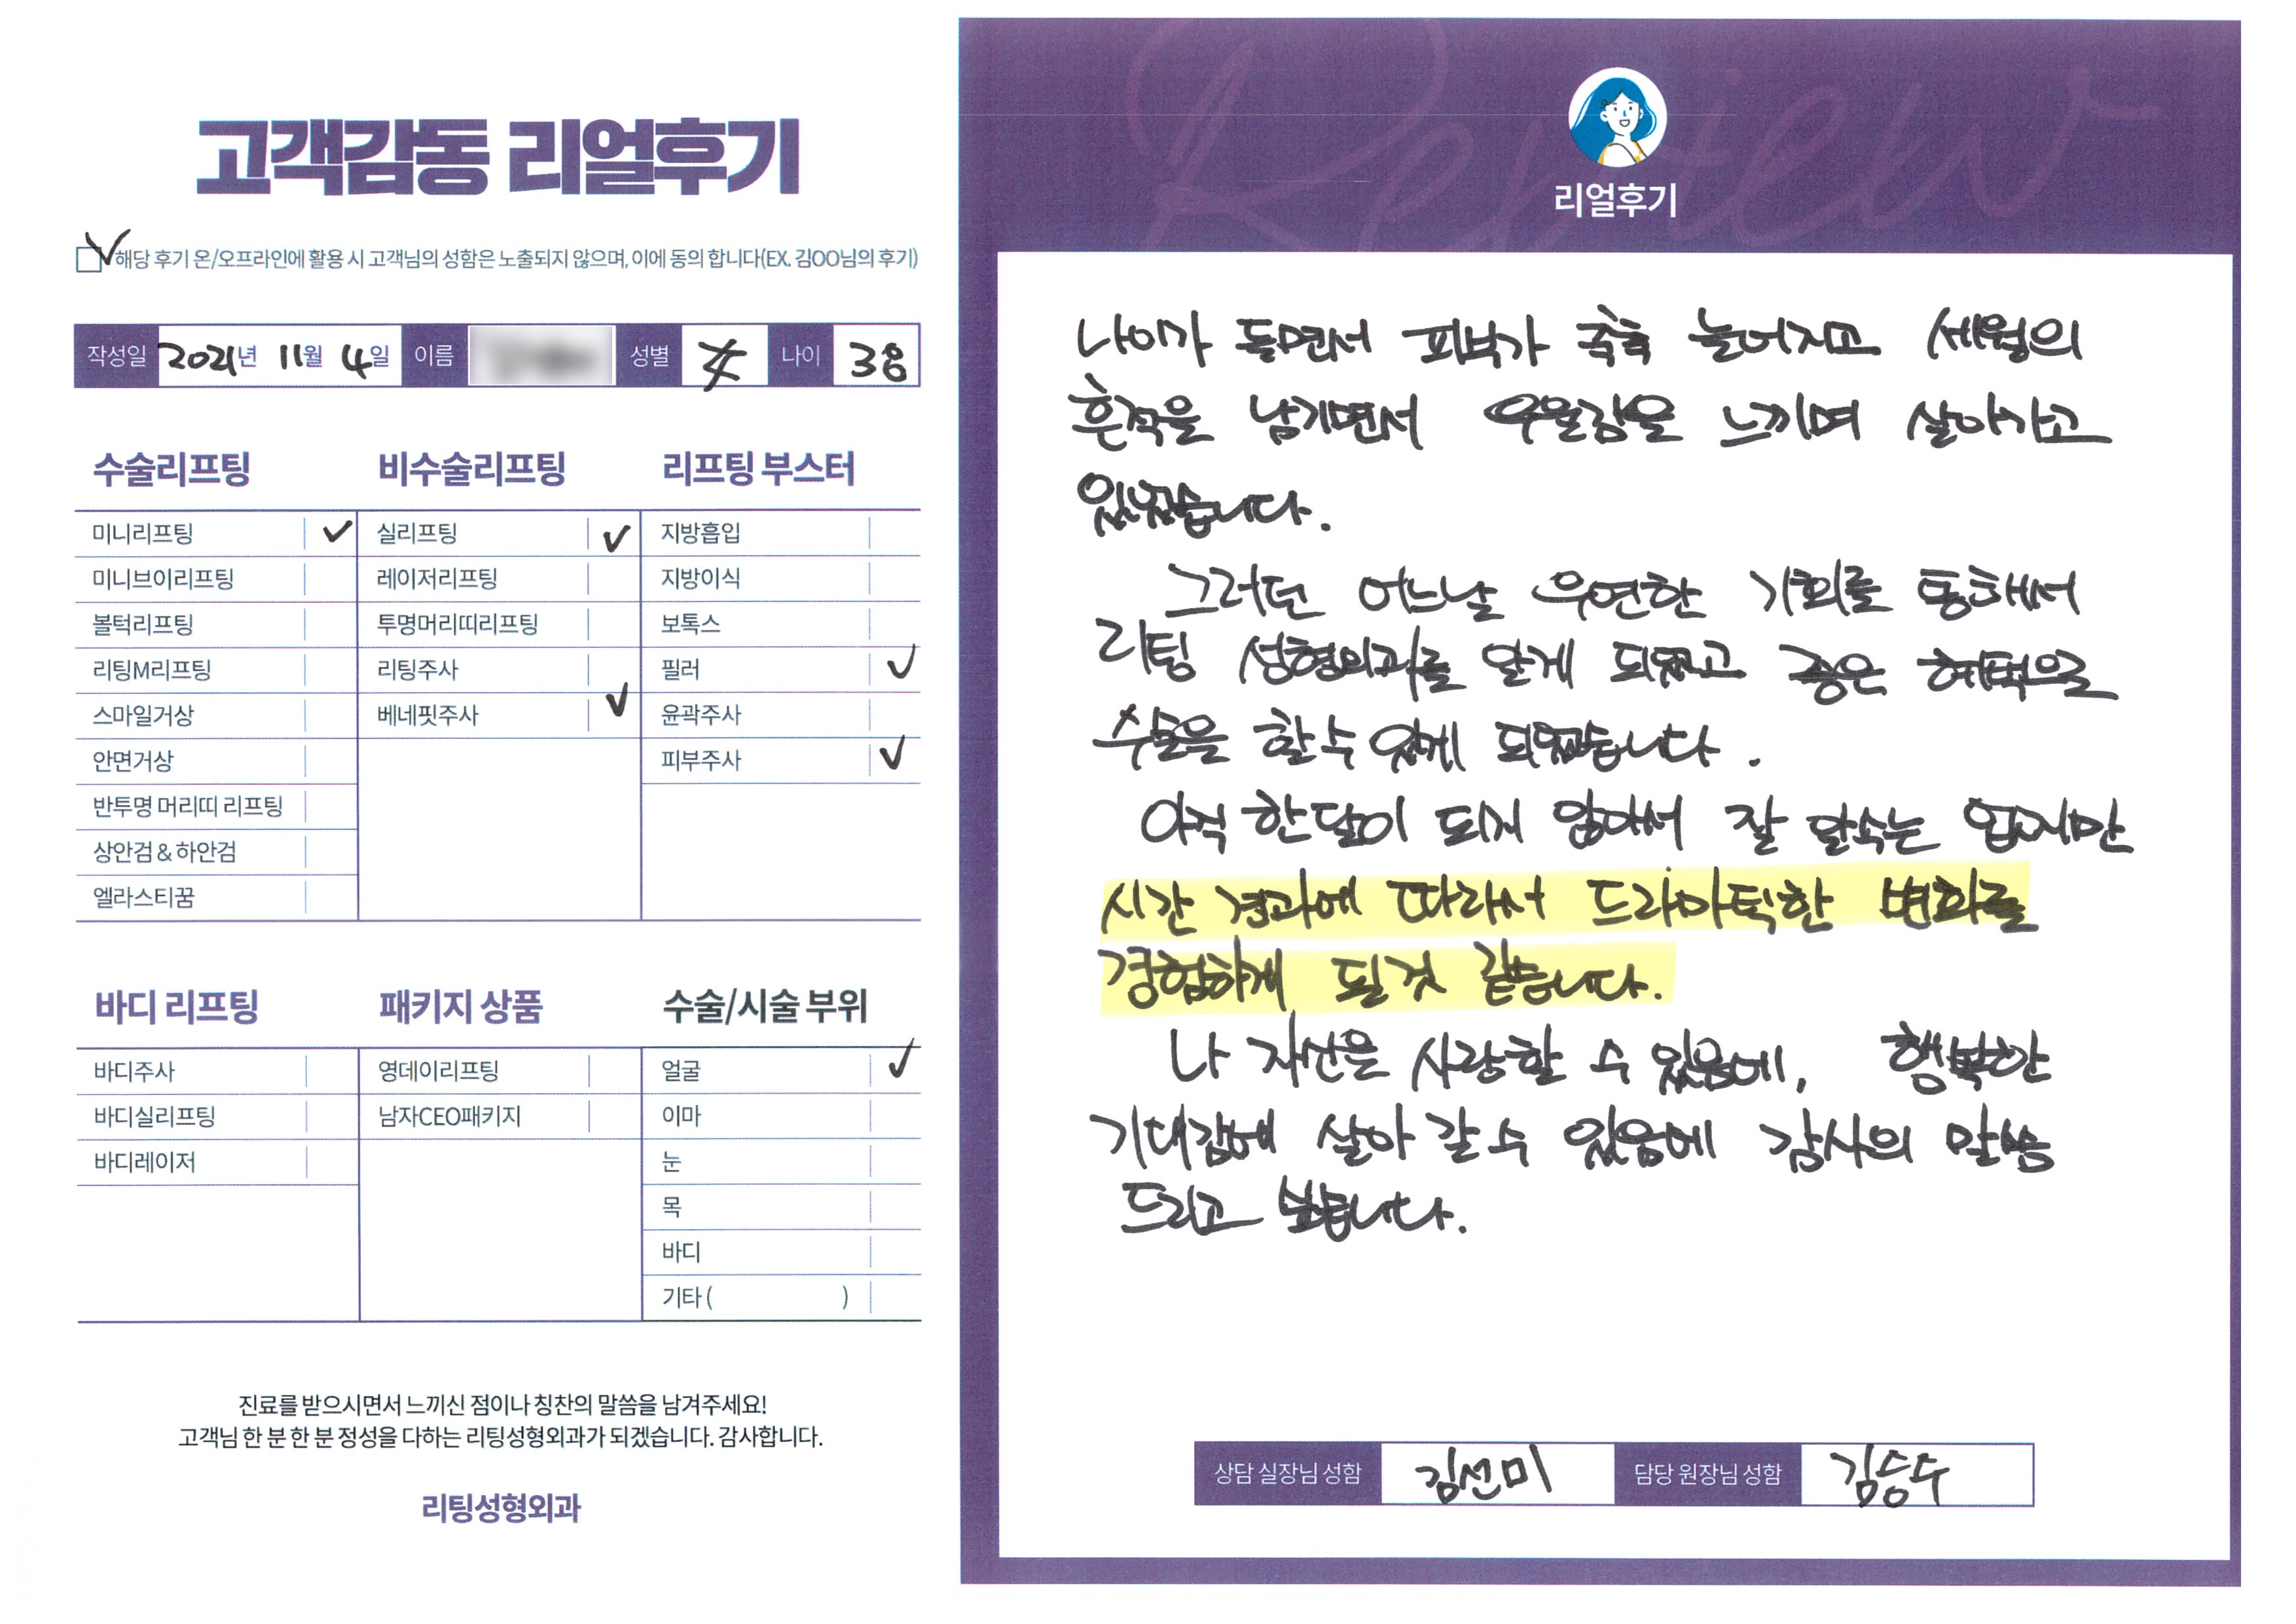 고객감동 리얼후기
해당 후기 온/오프라인에 활용 시 고객님의 성함은 노출되지 않으며, 이에 동의 합니다(EX. 김OO님의 후기)
작성일 2021년 11월 4일 이름 성별 女 나이 38
수술리프팅
미니리프팅
미니브이리프팅
볼턱리프팅
리팅M리프팅
스마일거상
안면거상
반투명 머리띠 리프팅
상안검 & 하안검
엘라스티꿈
비수술리프팅
실리프팅
레이저리프팅
투명머리띠리프팅
리팅주사
베네핏주사
리프팅 부스터
지방흡입
지방이식
보톡스
필러
윤곽주사
피부주사
바디 리프팅
바디주사
바디실리프팅
바디레이저
패키지 상품
영데이리프팅
남자CEO패키지
수술/시술 부위
얼굴
이마
눈
목
바디
기타 ( )
진료를 받으시면서 느끼신 점이나 칭찬의 말씀을 남겨주세요!
고객님 한 분 한 분 정성을 다하는 리팅성형외과가 되겠습니다. 감사합니다.
리팅성형외과
Review
리얼후기
나이가 들면서 피부가 축축 늘어지고 세월의
흔적을 남기면서 우울감을 느끼며 살아가고
있었습니다.
그러던 어느날 우연한 기회를 통해서
리팅 성형외과를 알게 되었고 좋은 혜택으로
수술을 할 수 있게 되었습니다.
아직 한달이 되지 않아서 잘 알수는 없지만
시간 경과에 따라서 드라마틱한 변화를
경험하게 될 것 같습니다.
나 자신을 사랑할 수 있음에, 행복한
기대감에 살아 갈 수 있음에 감사의 말씀
드리고 봅니다.
상담 실장님 성함 김선미 담당 원장님 성함 김승수